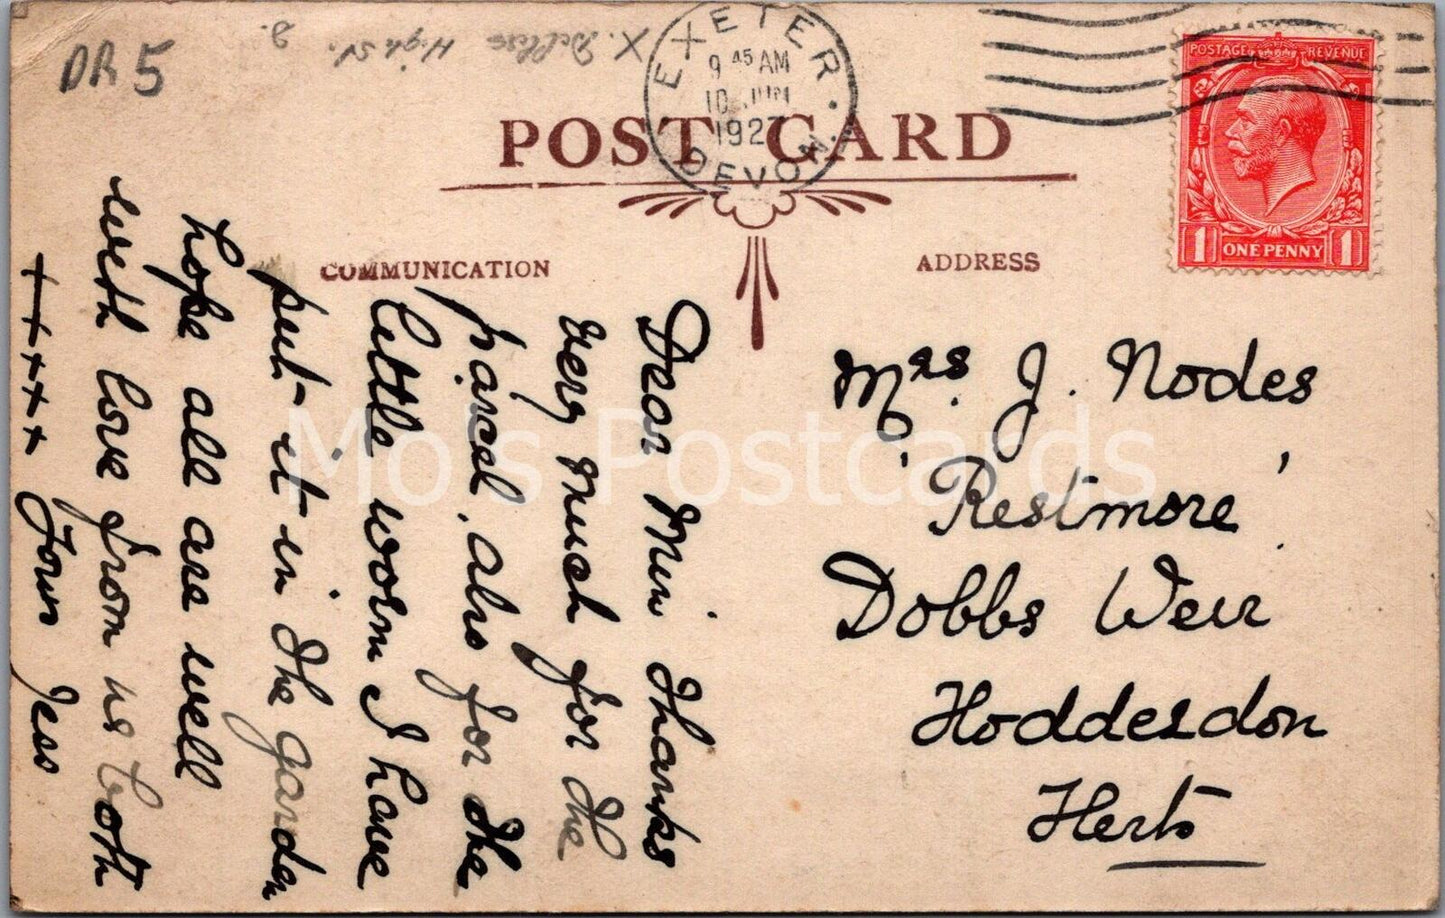 DR 5
High St.
EXETER
9 45 AM
10 JUN
1927
DEVON.
POSTAGE REVENUE
1 ONE PENNY 1
POST CARD
COMMUNICATION
ADDRESS
Dear Min Thanks
very much for the
parcel, also for the
little worm I have
put it in the garden
hope all are well
with love from us both
++++ Your Jess
Mrs. J. Nodes
'Restmore'
Dobbs Weir
Hoddesdon
Herts
Mo's Postcards